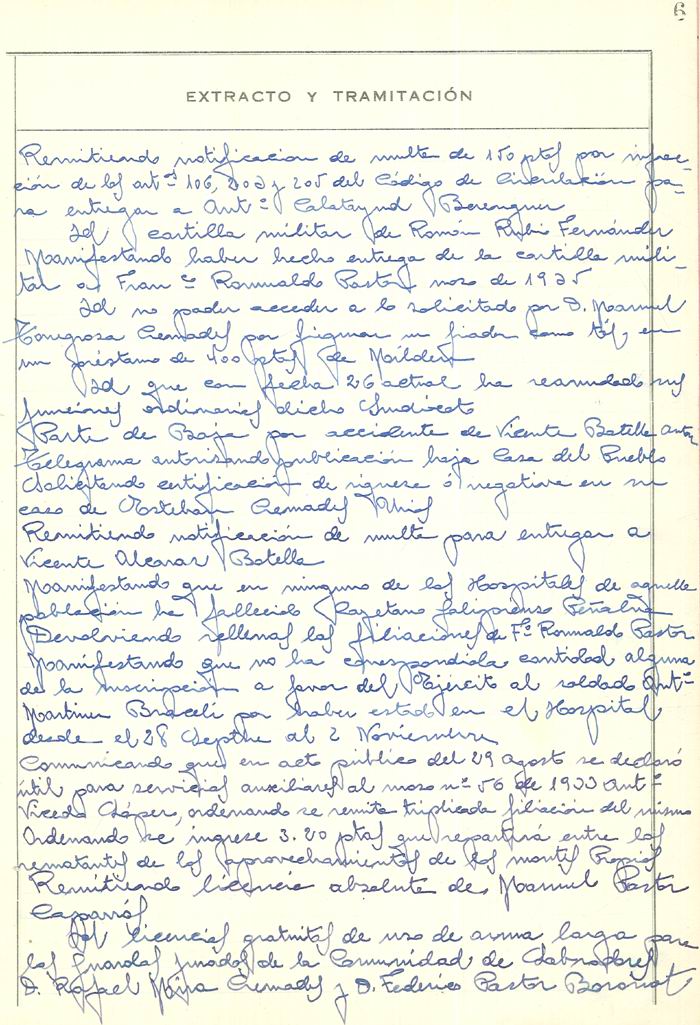 6
EXTRACTO Y TRAMITACIÓN
Remitiendo notificacion de multa de 150 ptas por infrac-
ción de los artºs 106, 202 y 205 del Código de Circulación pa-
ra entregar a Antº Calatayud Berenguer
Id cartilla militar de Román Rubio Fernández
Manifestando haber hecho entrega de la cartilla mili-
tar a Franco Romualdo Pastor mozo de 1935
Id no poder acceder a lo solicitado por D. Manuel
Torregrosa Cremades por figurar un fiador como tal, en
un préstamo de 400 ptas de
Id que con fecha 26 actual ha reanudado sus
funciones ordinarias dicho Sindicato
Parte de Baja por accidente de Vicente Botella
Telegrama autorizando publicación baja Casa del Pueblo
Solicitando certificación de riqueza ó negativa en su
caso de Esteban Cremades
Remitiendo notificación de multa para entregar a
Vicente Alcaraz Botella
Manifestando que en ninguno de los Hospitales de aquella
población ha fallecido Cayetano Peñalva
Devolviendo rellenas las filiaciones de Fº Romualdo Pastor
Manifestando que no ha correspondido cantidad alguna
de la inscripción a favor del Ejército al soldado Antº
Martinez Braceli por haber estado en el Hospital
desde el 28 Septbre al 2 Noviembre
Comunicando que en acto público del 29 agosto se declaró
útil para servicios auxiliares al mozo nº 56 de 1933 Antº
Viceda López, ordenando se remita triplicada filiación del mismo
Ordenando se ingrese 3.20 ptas que repartirá entre los
rematantes de los aprovechamientos de los montes Propios
Remitiendo licencia absoluta de Manuel Pastor
Caparrós
Id licencias gratuitas de uso de arma larga para
los guardas jurados de la Comunidad de Labradores
D. Rafael Mira Cremades y D. Federico Pastor Boronat